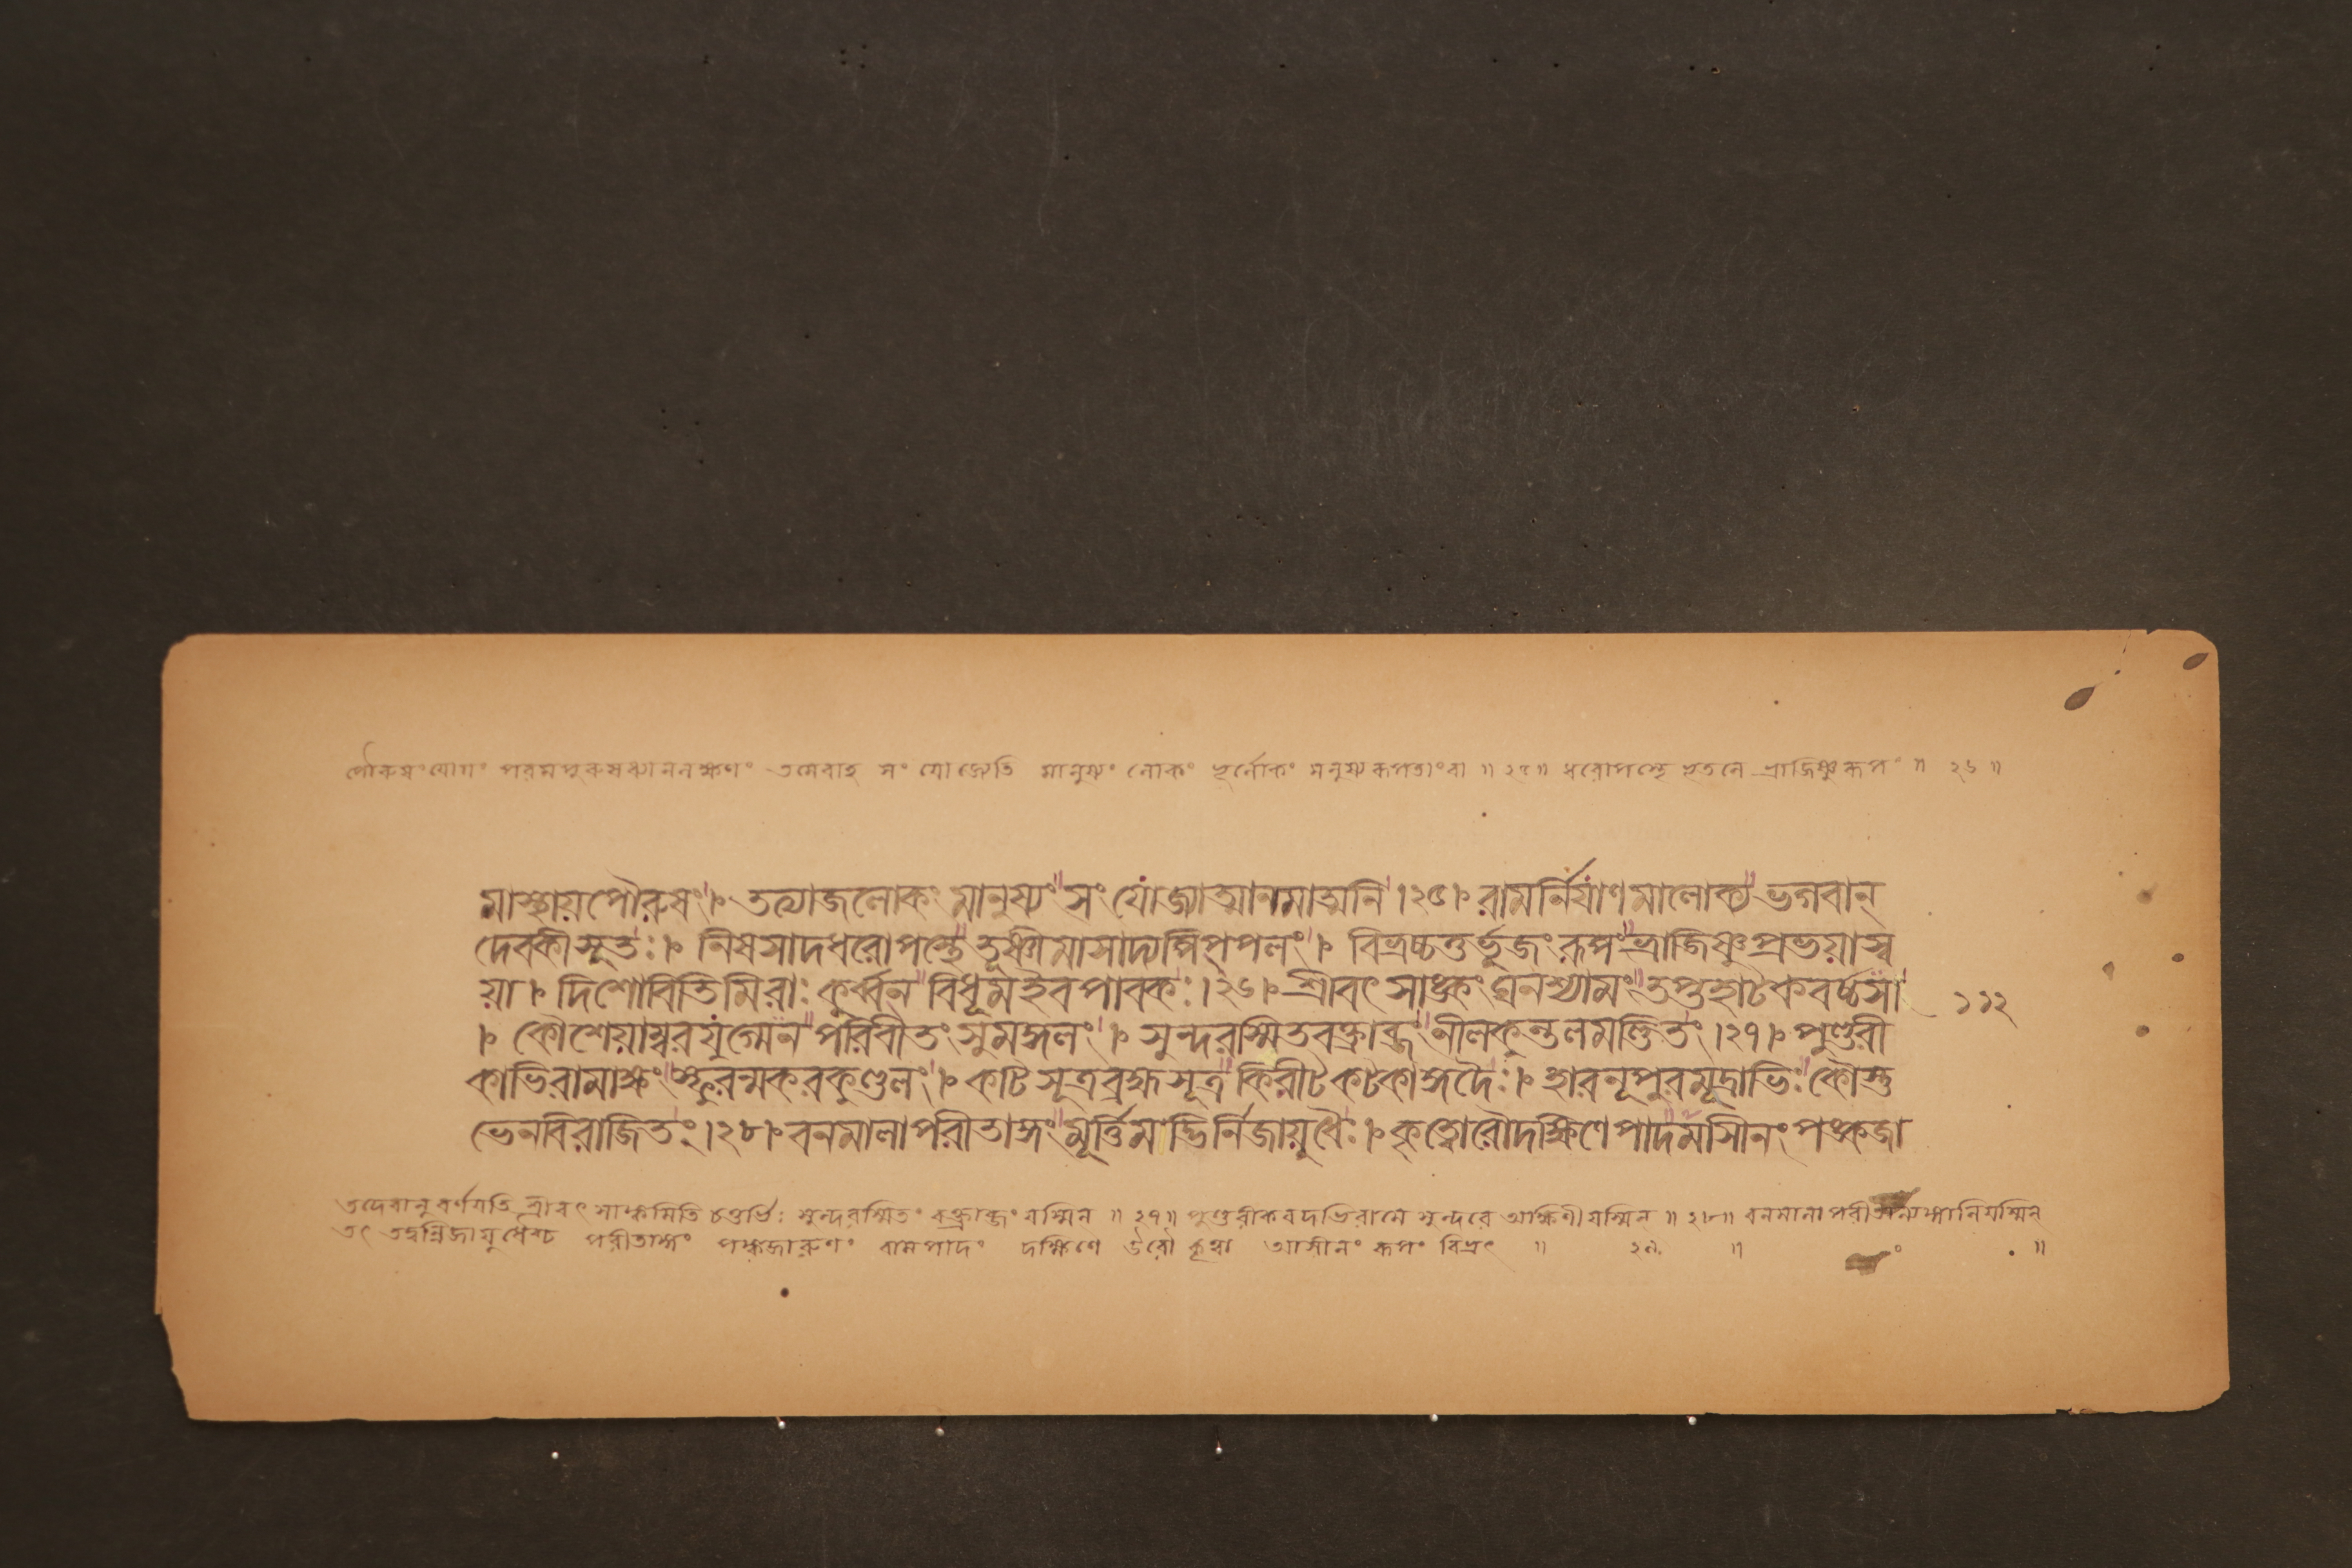 পৌরুষংযোগং পরমপুরুষধ্যানলক্ষণং তমেবাহ সং যোজ্যেতি মানুষ্যং লোকং ভূর্লোকং মনুষ্যরূপতাংবা ॥ ২৫॥ ধরোপস্থে ভূতলে ভ্রাজিষ্ণুরূপং ॥ ২৬ ॥
মাস্থায়পৌরুষং । তত্যাজলোকং মানুষ্যং সং যোজ্যাত্মানমাত্মনি ।২৫। রামর্নির্যাণমালোক্য ভগবান্
দেবকীসূতঃ । নিষসাদধরোপস্থে তূষ্ণীমাসাদ্যপিপ্পলং । বিভ্রচ্চতুর্ভুজং রূপং ভ্রাজিষ্ণুপ্রভয়াস্ব
য়া । দিশোবিতিমিরাঃ কুর্ব্বন বিধূমইব পাবকঃ ।২৬। শ্রীবৎসাঙ্কং ঘনশ্যামং তপ্তহাটকবর্চ্চসা ১১২
। কৌশেয়াম্বরযুগ্মেন পরিবীতং সুমঙ্গলং । সুন্দরস্মিতবক্ত্রাব্জং নীলকুন্তলমণ্ডিতং ।২৭। পুণ্ডরী
কাভিরামাক্ষং স্ফুরন্মকরকুণ্ডলং । কটিসূত্রব্রহ্মসূত্র কিরীটকটকাঙ্গদৈঃ । হারনূপুরমূদ্রাভিঃ কৌস্তু
ভেনবিরাজিতং ।২৮। বনমালাপরীতাঙ্গং মূর্ত্তিমদ্ভির্নিজায়ুধৈঃ । কৃত্বোরৌদক্ষিণেপাদমাসীনং পঙ্কজা
তদেবানুবর্ণয়তি শ্রীবৎসাঙ্কমিতি চতুর্ভিঃ সুন্দরস্মিতং বক্ত্রাব্জং যস্মিন ॥ ২৭॥ পুণ্ডরীকবদভিরামে সুন্দরে আক্ষিণীযস্মিন ॥ ২৮॥ বনমালাপরীতান্যঙ্গানিযস্মিন্
তৎ তদ্বন্নিজায়ুধৈশ্চ পরীতাঙ্গং পঙ্কজারুণং বামপাদং দক্ষিণে ঊরৌ কৃত্বা আসীনং রূপং বিভ্রৎ ॥ ২৯ ॥ ॥